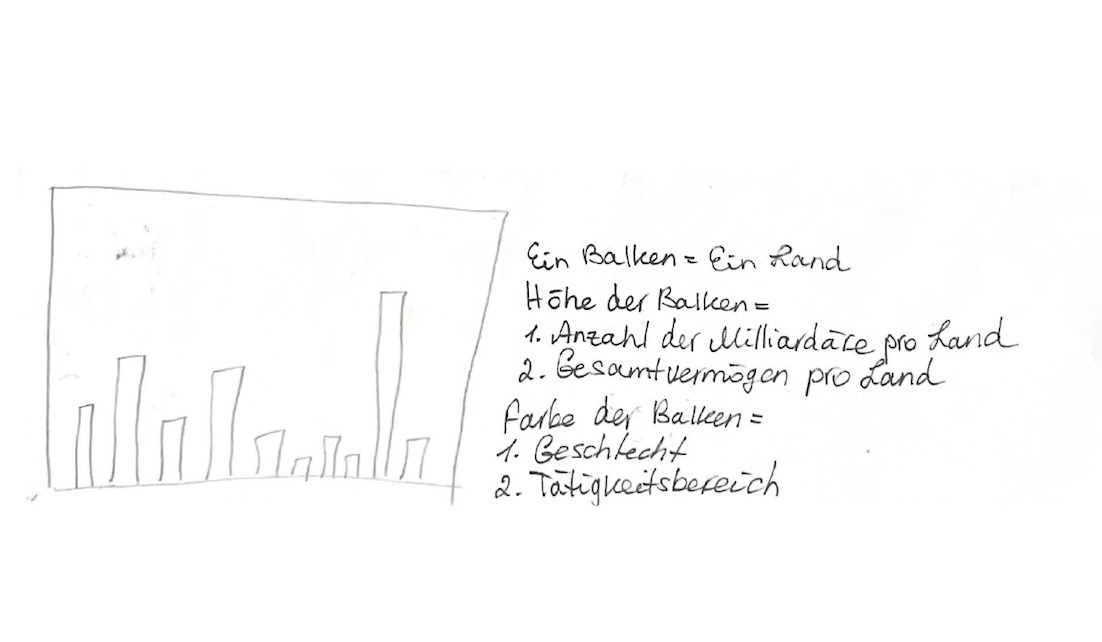 Ein Balken = Ein Land
Höhe der Balken =
1. Anzahl der Milliardäre pro Land
2. Gesamtvermögen pro Land
Farbe der Balken =
1. Geschlecht
2. Tätigkeitsbereich